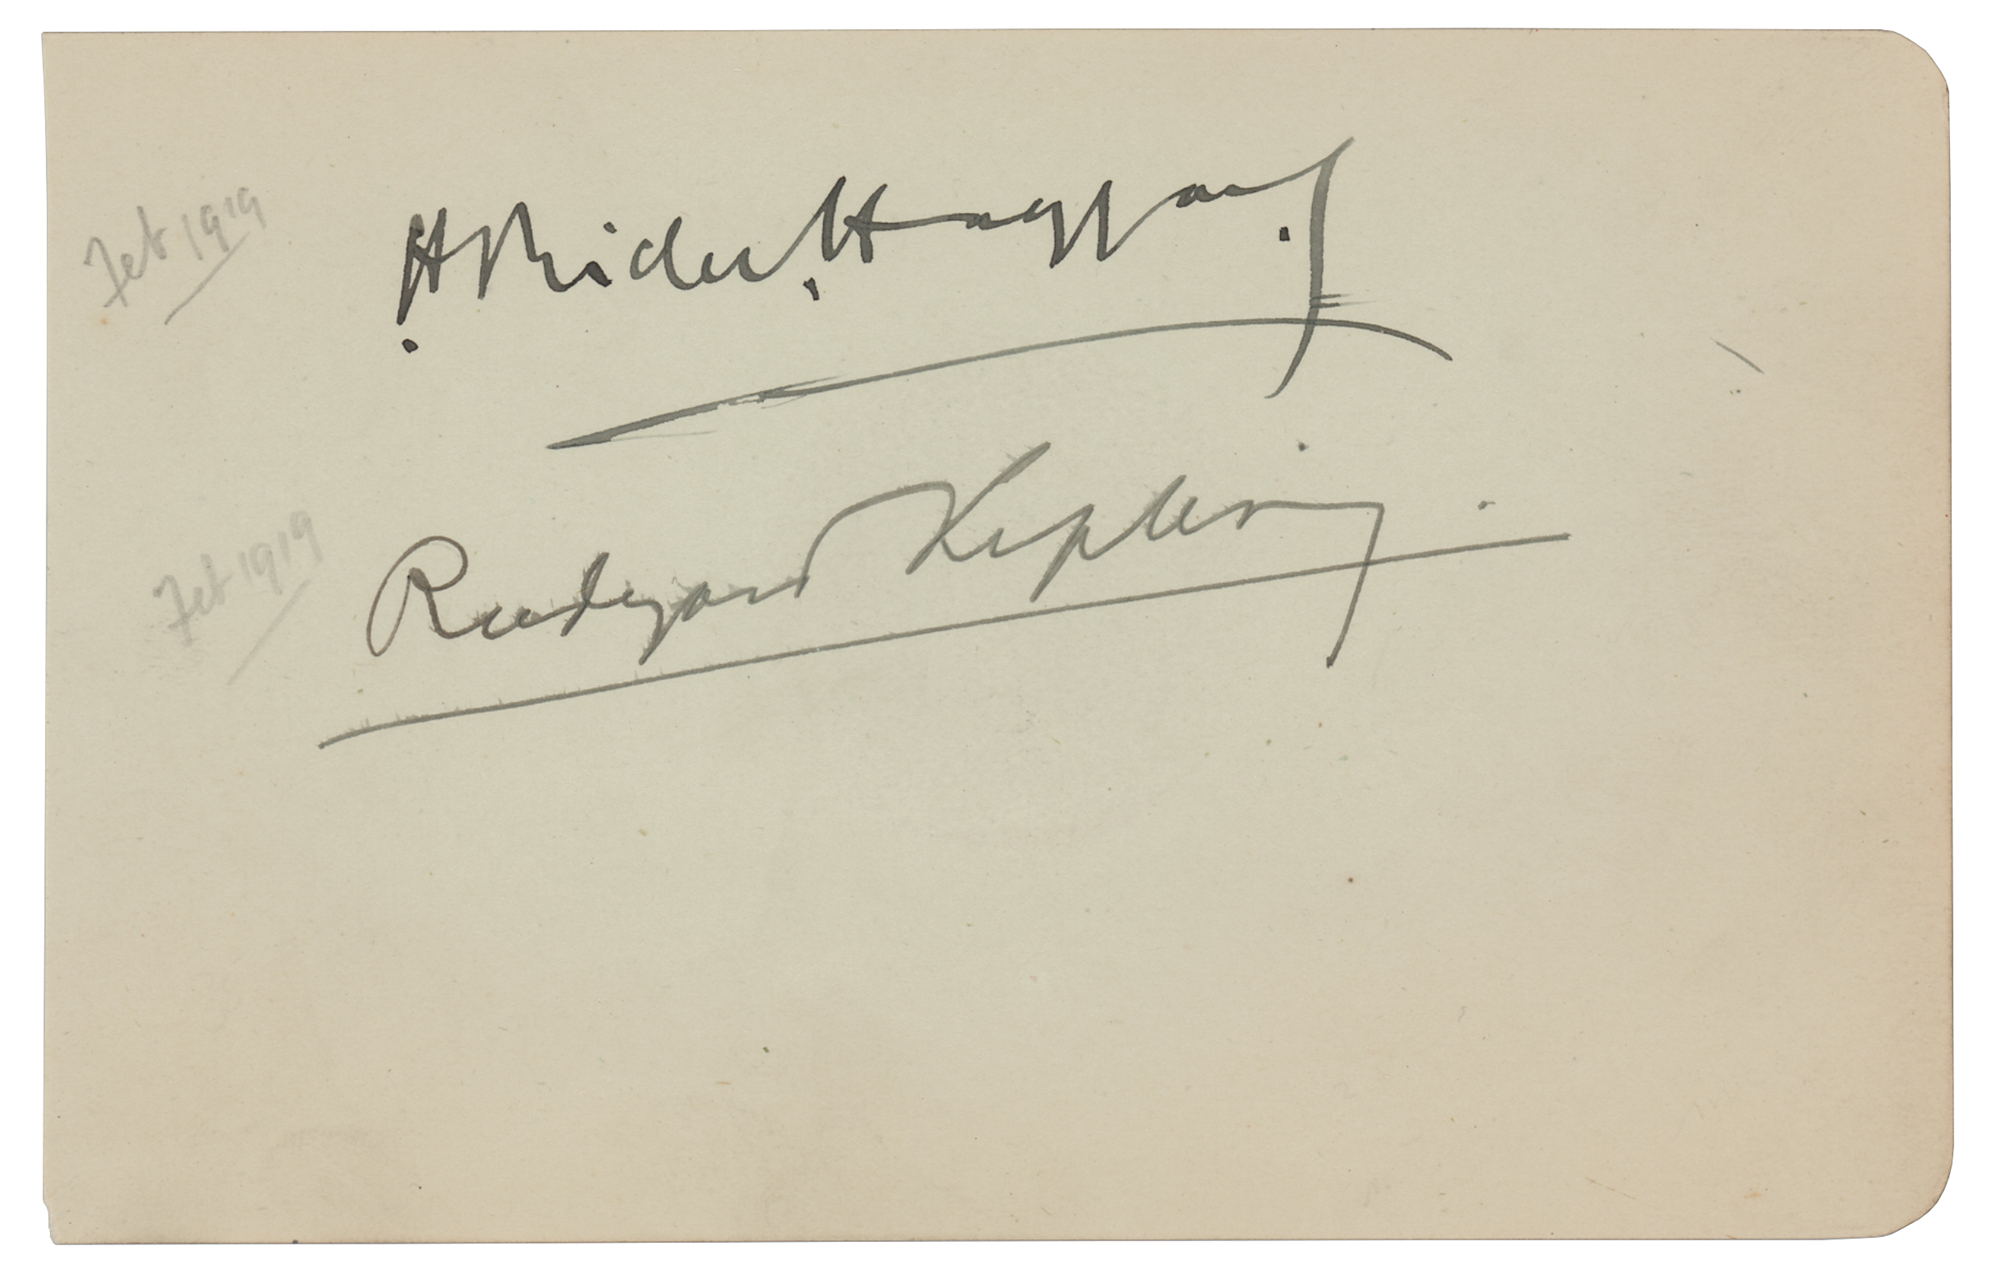 Feb 1919
H Rider Haggard
Feb 1919
Rudyard Kipling.